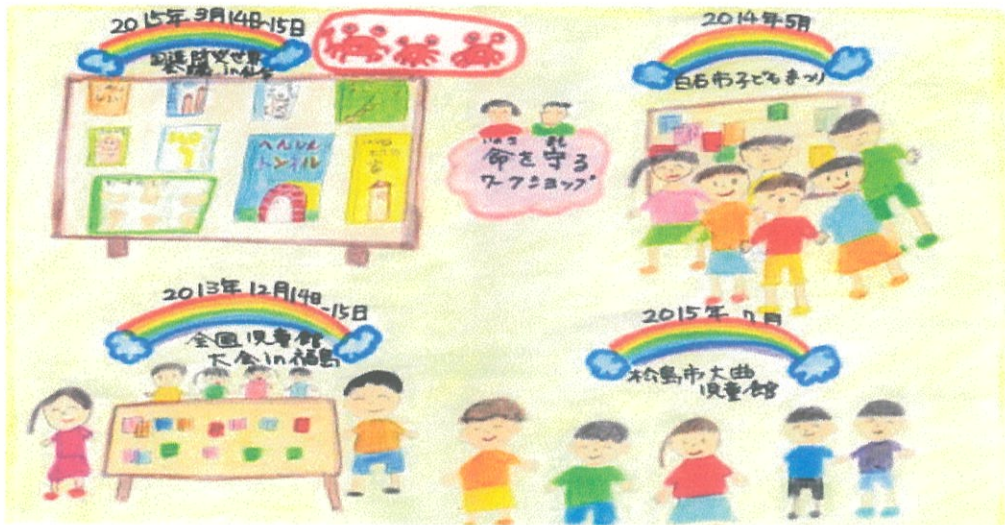 2015年3月14日-15日
国連防災世界
会議 in仙台
へんしん
トンネル
命を守る
ワークショップ
2014年5月
白石市子どもまつり
2013年12月14日-15日
全国児童館
大会in福島
2015年7月
松島市大曲
児童館